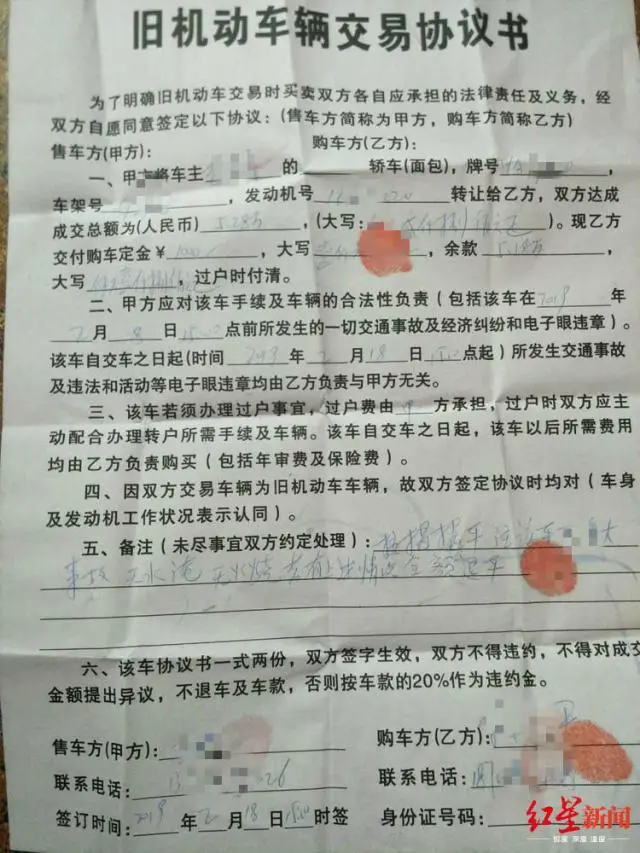 旧机动车辆交易协议书
为了明确旧机动车交易时买卖双方各自应承担的法律责任及义务，经
双方自愿同意签定以下协议：(售车方简称为甲方，购车方简称乙方)
售车方(甲方)： 购车方(乙方)：
一、甲方将车主 的 轿车(面包)，牌号 ，
车架号 ，发动机号 转让给乙方，双方达成
成交总额为(人民币) 5.285 ，(大写： )。现乙方
交付购车定金￥ 1000 ，大写 ，余款 5.185 ，
大写 ，过户时付清。
二、甲方应对该车手续及车辆的合法性负责（包括该车在 2019 年
2 月 18 日 15:00 点前所发生的一切交通事故及经济纠纷和电子眼违章）。
该车自交车之日起(时间 2019 年 2 月 18 日 15:00 点起）所发生交通事故
及违法和活动等电子眼违章均由乙方负责与甲方无关。
三、该车若须办理过户事宜，过户费由 甲 方承担，过户时双方应主
动配合办理转户所需手续及车辆。该车自交车之日起，该车以后所需费用
均由乙方负责购买（包括年审费及保险费）。
四、因双方交易车辆为旧机动车车辆，故双方签定协议时均对（车身
及发动机工作状况表示认同）。
五、备注（未尽事宜双方约定处理）： 车 该车 大
事故 无水淹 无火烧 全额退车
六、该车协议书一式两份，双方签字生效，双方不得违约，不得对成交
金额提出异议，不退车及车款，否则按车款的20%作为违约金。
售车方(甲方)： 购车方(乙方)：
联系电话： 13 26 联系电话：
签订时间： 2019 年 2 月 18 日 15:00 时签 身份证号码：
红星新闻
深度 温度